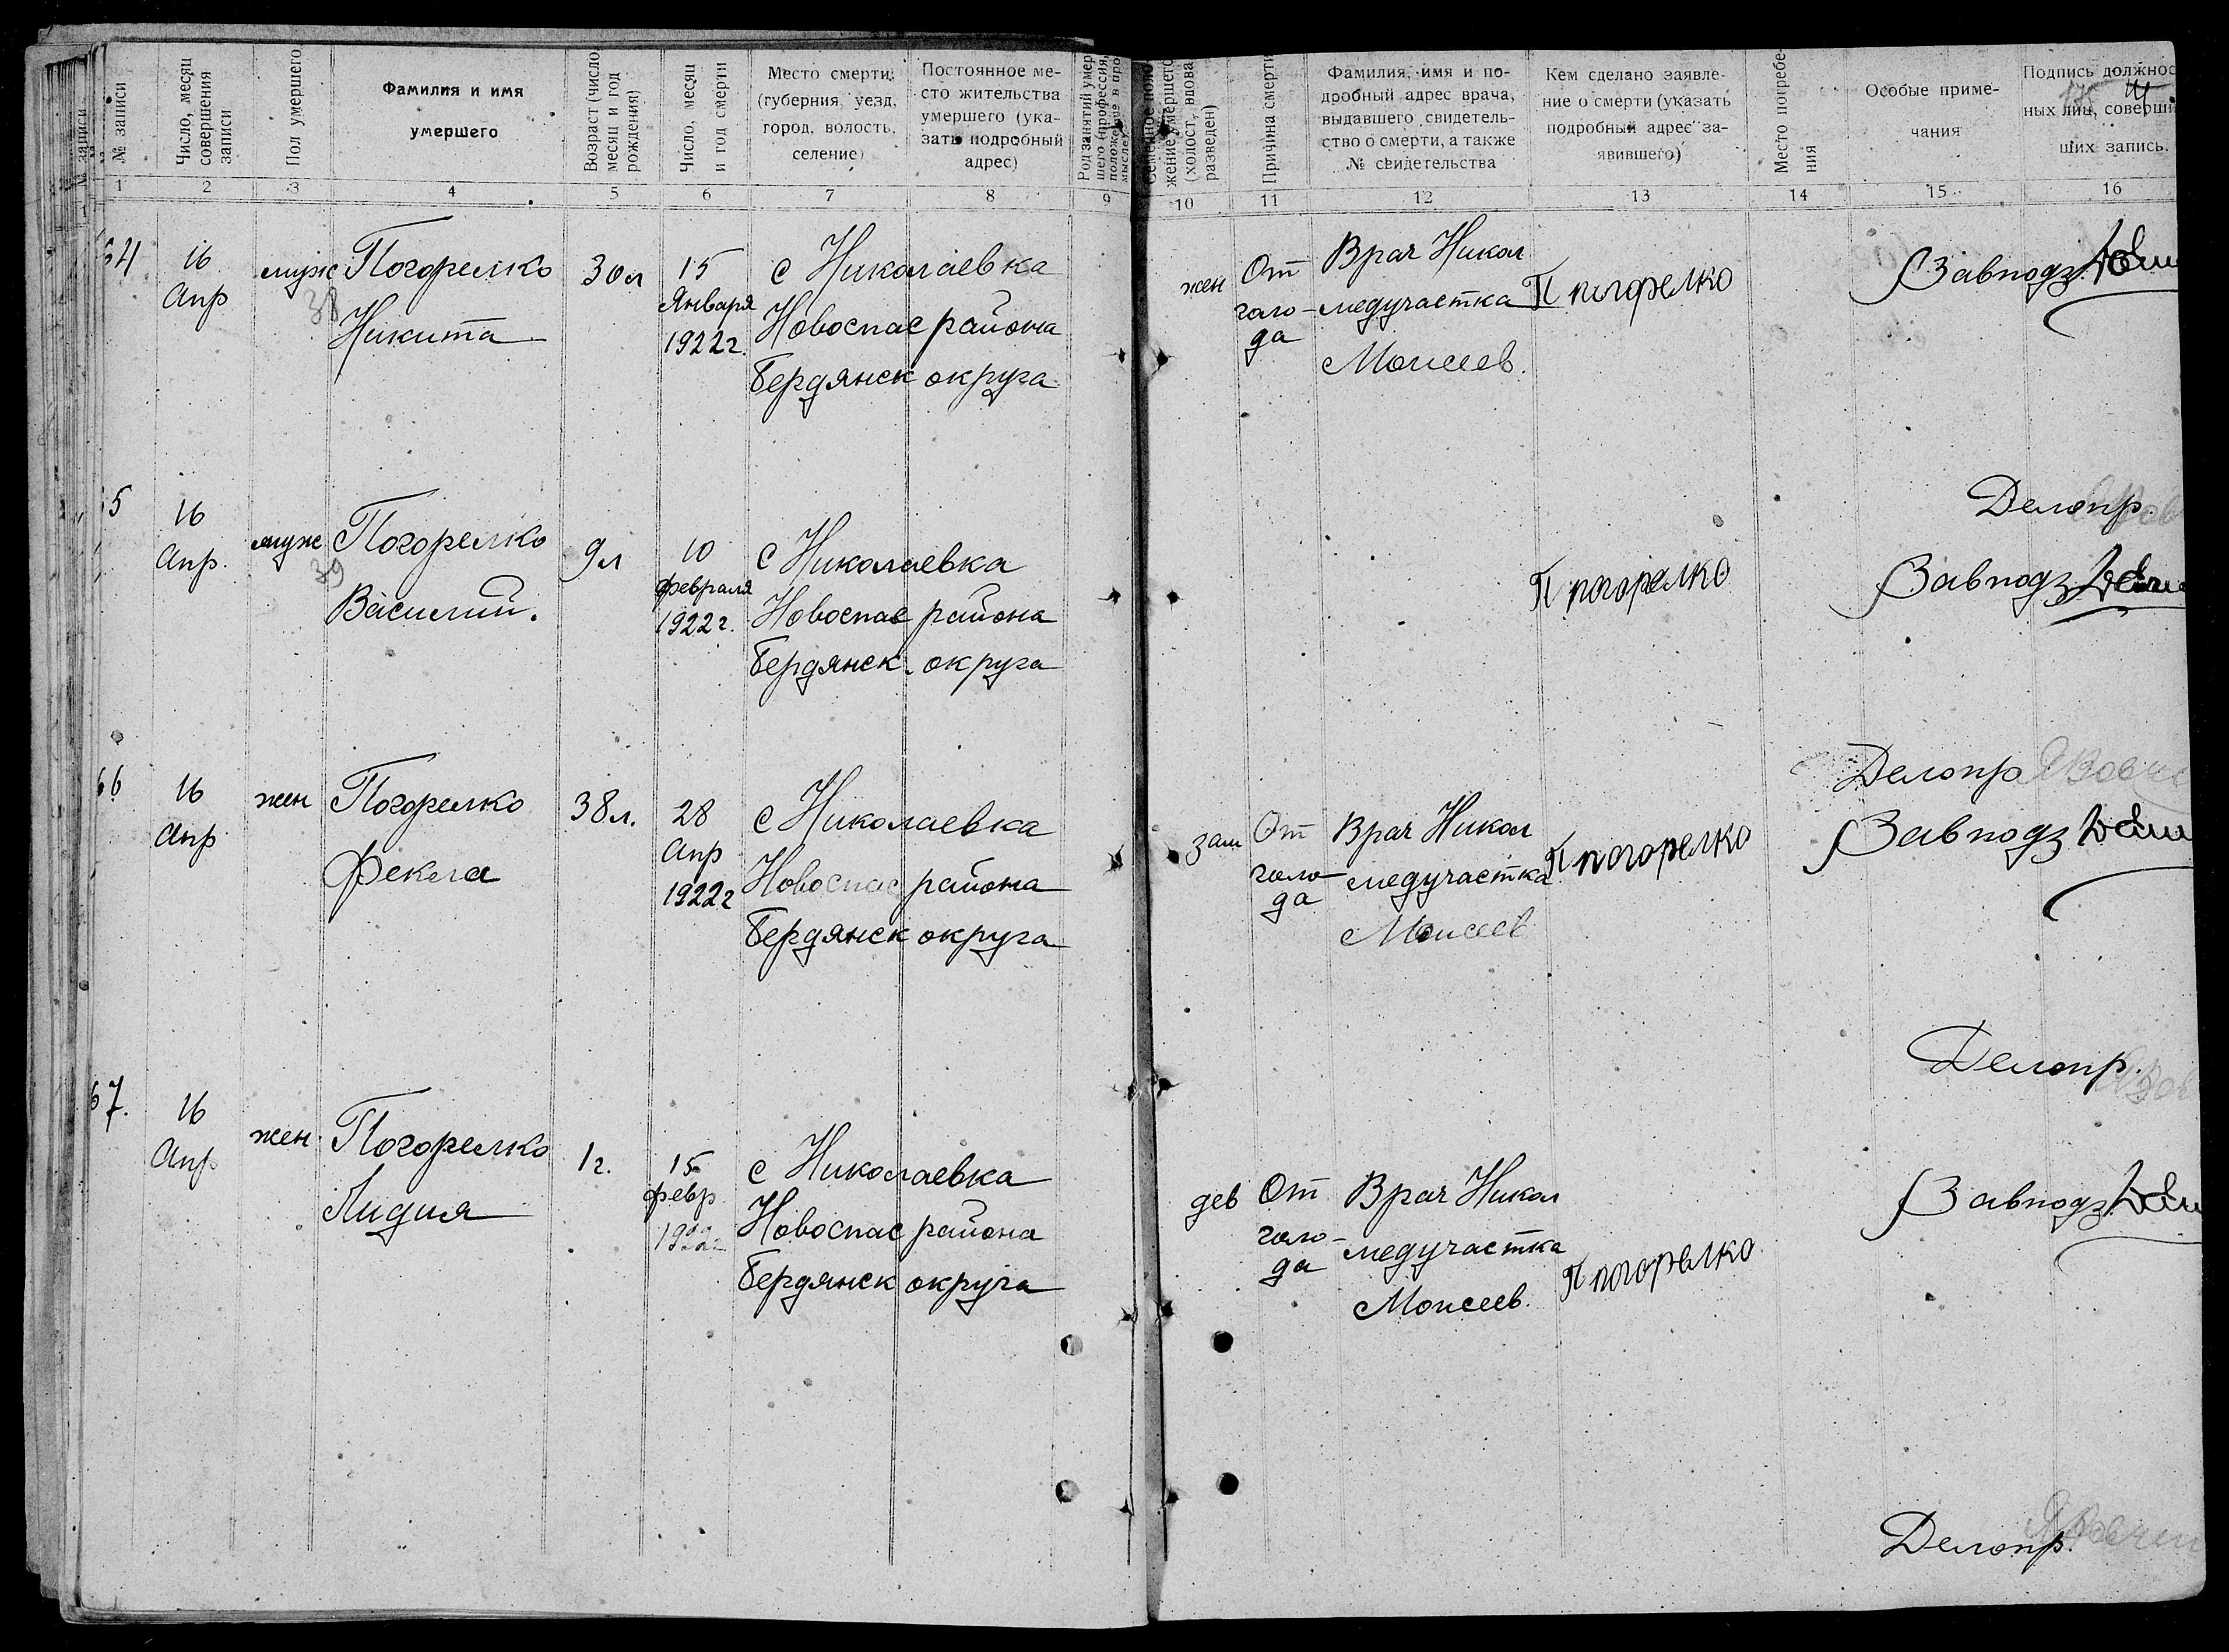 № записи
№ записи
Число, месяц
совершения
записи
Пол умершего
Фамилия и имя
умершего
Возраст (число
месяц и год
рождения)
Число, месяц
и год смерти
Место смерти,
(губерния, уезд,
город, волость,
селение)
Постоянное ме-
сто жительства
умершего (ука-
зать подробный
адрес)
Род занятий умер
шего (профессия,
положение в про
мысле)
жение умершего
(холост, вдова,
разведен)
Причина смерти
Фамилия, имя и по-
дробный адрес врача,
выдавшего свидетель-
ство о смерти, а также
№ свидетельства
Кем сделано заявле-
ние о смерти (указать
подробный адрес за-
явившего)
Место погребе-
ния
Особые приме-
чания
Подпись должнос
ных лиц, соверши
ших запись.
1
1 2 3 4 5 6 7 8 9 10 11 12 13 14 15 16
64
16
Апр
муж
38
Погорелко
Никита
30 л
15
Января
1922 г.
с Николаевка
Новоспас района
Бердянск округа
жен
От
голо-
да
Врач Никол
медучастка
Моисеев.
П погорелко
Завподз
Делопр.
5
16
Апр.
муж
39
Погорелко
Василий.
9 л
10
февраля
1922 г.
с Николаевка
Новоспас района
Бердянск. округа
П погорелко
Завподз
Делопр
66
16
Апр
жен
Погорелко
Фекла
38 л.
28
Апр
1922 г
с Николаевка
Новоспас района
Бердянск округа
зам
От
голо-
да
Врач Никол
медучастка
Моисеев
П погорелко
Завподз
Делопр.
67.
16
Апр
жен
Погорелко
Лидия
1 г.
15
февр.
1922 г
с Николаевка
Новоспас района
Бердянск округа
дев
От
голо-
да
Врач Никол
медучастка
Моисеев.
П погорелко
Завподз
Делопр.